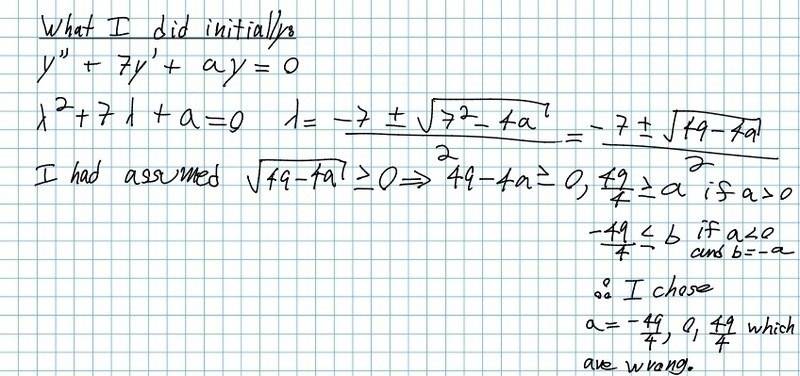 What I did initially:
y'' + 7y' + ay = 0
λ² + 7λ + a = 0   λ = (-7 ± √(7² - 4a))/2 = (-7 ± √(49 - 4a))/2
I had assumed √(49 - 4a) ≥ 0 ⇒ 49 - 4a ≥ 0, 49/4 ≥ a if a > 0
-49/4 ≤ b if a < 0
and b = -a
∴ I chose
a = -49/4, 0, 49/4 which
are wrong.